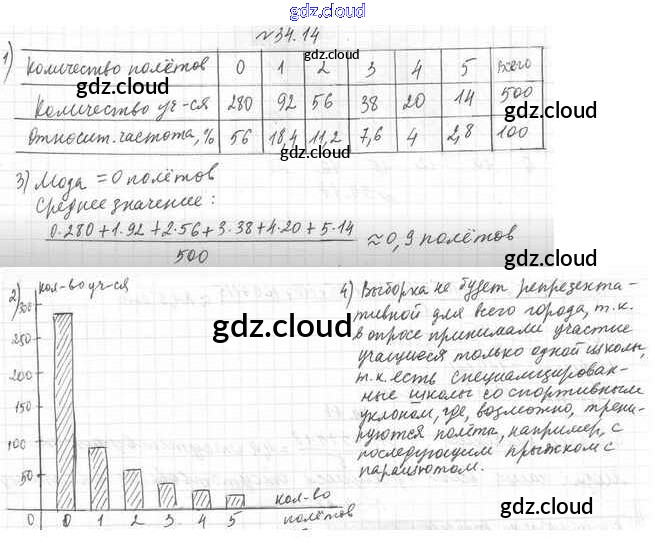 gdz.cloud
№34.14
1)
Количество полётов 0 1 2 3 4 5 Всего
gdz.cloud gdz.cloud
Количество уч-ся 280 92 56 38 20 14 500
Относит. частота, % 56 18,4 11,2 7,6 4 2,8 100
gdz.cloud
3) Мода = 0 полётов
Среднее значение:
0·280+1·92+2·56+3·38+4·20+5·14
500
≈0,9 полётов
gdz.cloud
2) кол-во уч-ся
300
250
200
150
100
50
0
0 1 2 3 4 5
кол-во
полётов
gdz.cloud
gdz.cloud
4) Выборка не будет репрезента-
тивной для всего города, т.к.
в опросе принимали участие
учащиеся только одной школы,
т.к. есть специализирован-
ные школы со спортивным
уклоном, где, возможно, трени-
руются полёта, например, с
последующим прыжком с
парашютом.
gdz.cloud
gdz.cloud